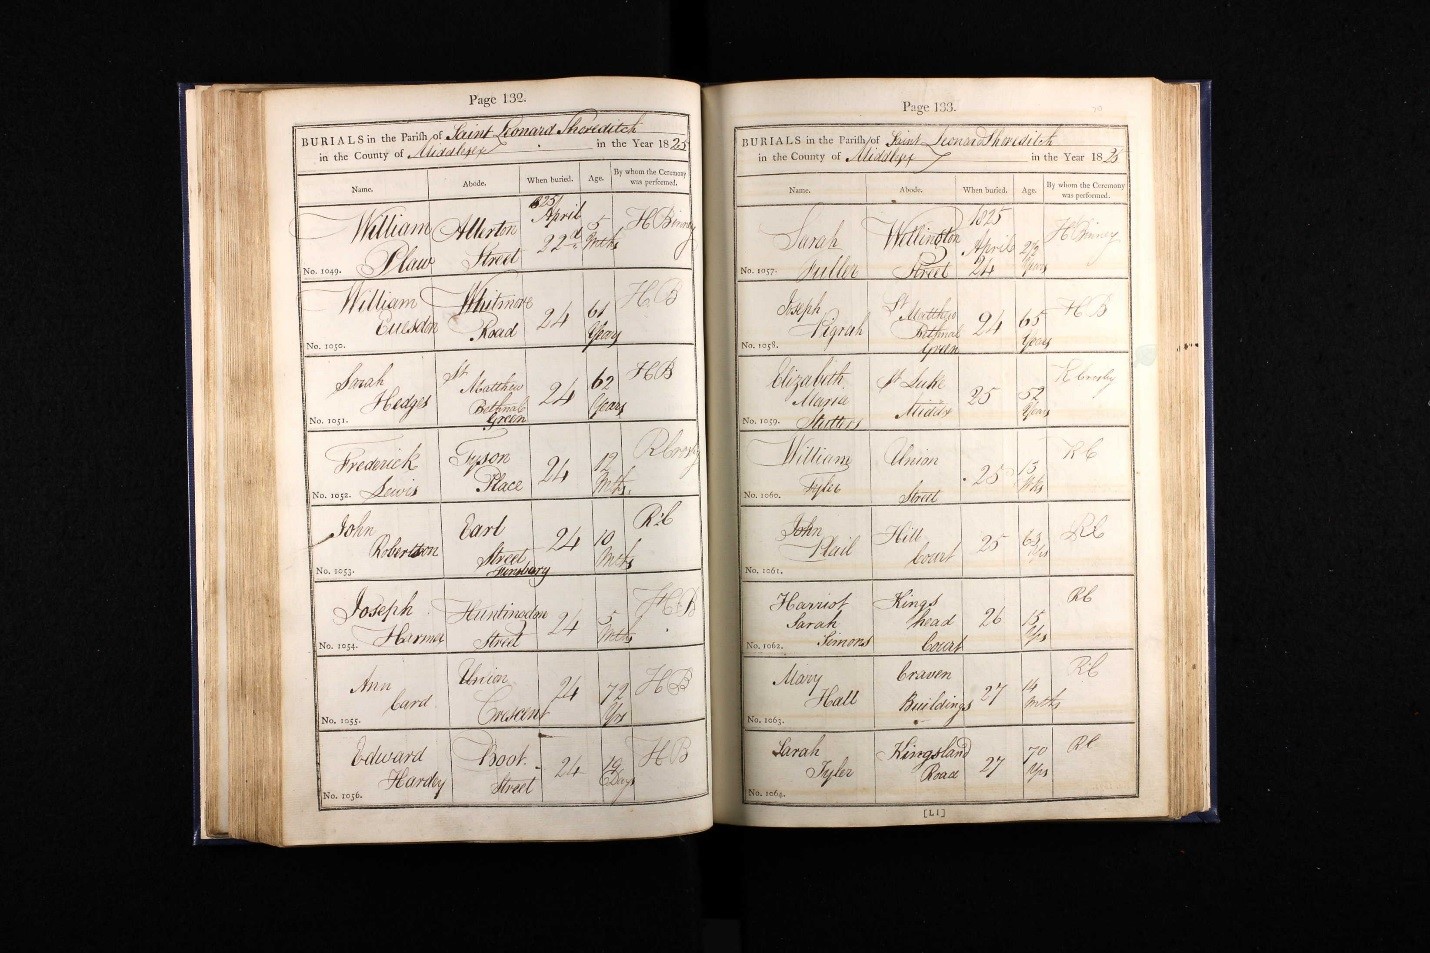 Page 132.
BURIALS in the Parish of Saint Leonard Shoreditch
in the County of Middlesex in the Year 1825
Name. Abode. When buried. Age. By whom the Ceremony was performed.
William Plaw Allerton Street 1825 April 22d 5 Mths H Binney
No. 1049.
William Euesdon Whitmore Road 24 61 Years H. B
No. 1050.
Sarah Hedges St Matthew Bethnal Green 24 62 Years H B
No. 1051.
Frederick Lewis Tyson Place 24 12 Mths. R Crosby
No. 1052.
John Robertson Earl Street Finsbury 24 10 Mths R C
No. 1053.
Joseph Harmer Huntingdon Street 24 5 Mths H B
No. 1054.
Ann Card Union Crescent 24 72 Yrs H B
No. 1055.
Edward Hardey Hoot. Street 24 19 Days H B
No. 1056.
Page 133.
BURIALS in the Parish of Saint Leonard Shoreditch
in the County of Middlesex in the Year 1825
Name. Abode. When buried. Age. By whom the Ceremony was performed.
Sarah Fuller Wellington Street 1825 April 24 Years H Binney
No. 1057.
Joseph Pigrah St Matthew Bethnal Green 24 65 Years H B
No. 1058.
Elizabeth Maria St Luke Middx 25 52 Years R Crosby
No. 1059.
William Tyler Union Street 25 15 R C
No. 1060.
John Plail Hill Court 25 Yrs R C
No. 1061.
Harriot Sarah Simons Kings head Court 26 15 Yrs R C
No. 1062.
Mary Hall Craven Buildings 27 14 Mths R C
No. 1063.
Sarah Tyler Kingsland Road 27 70 Yrs R C
No. 1064.
[L1]